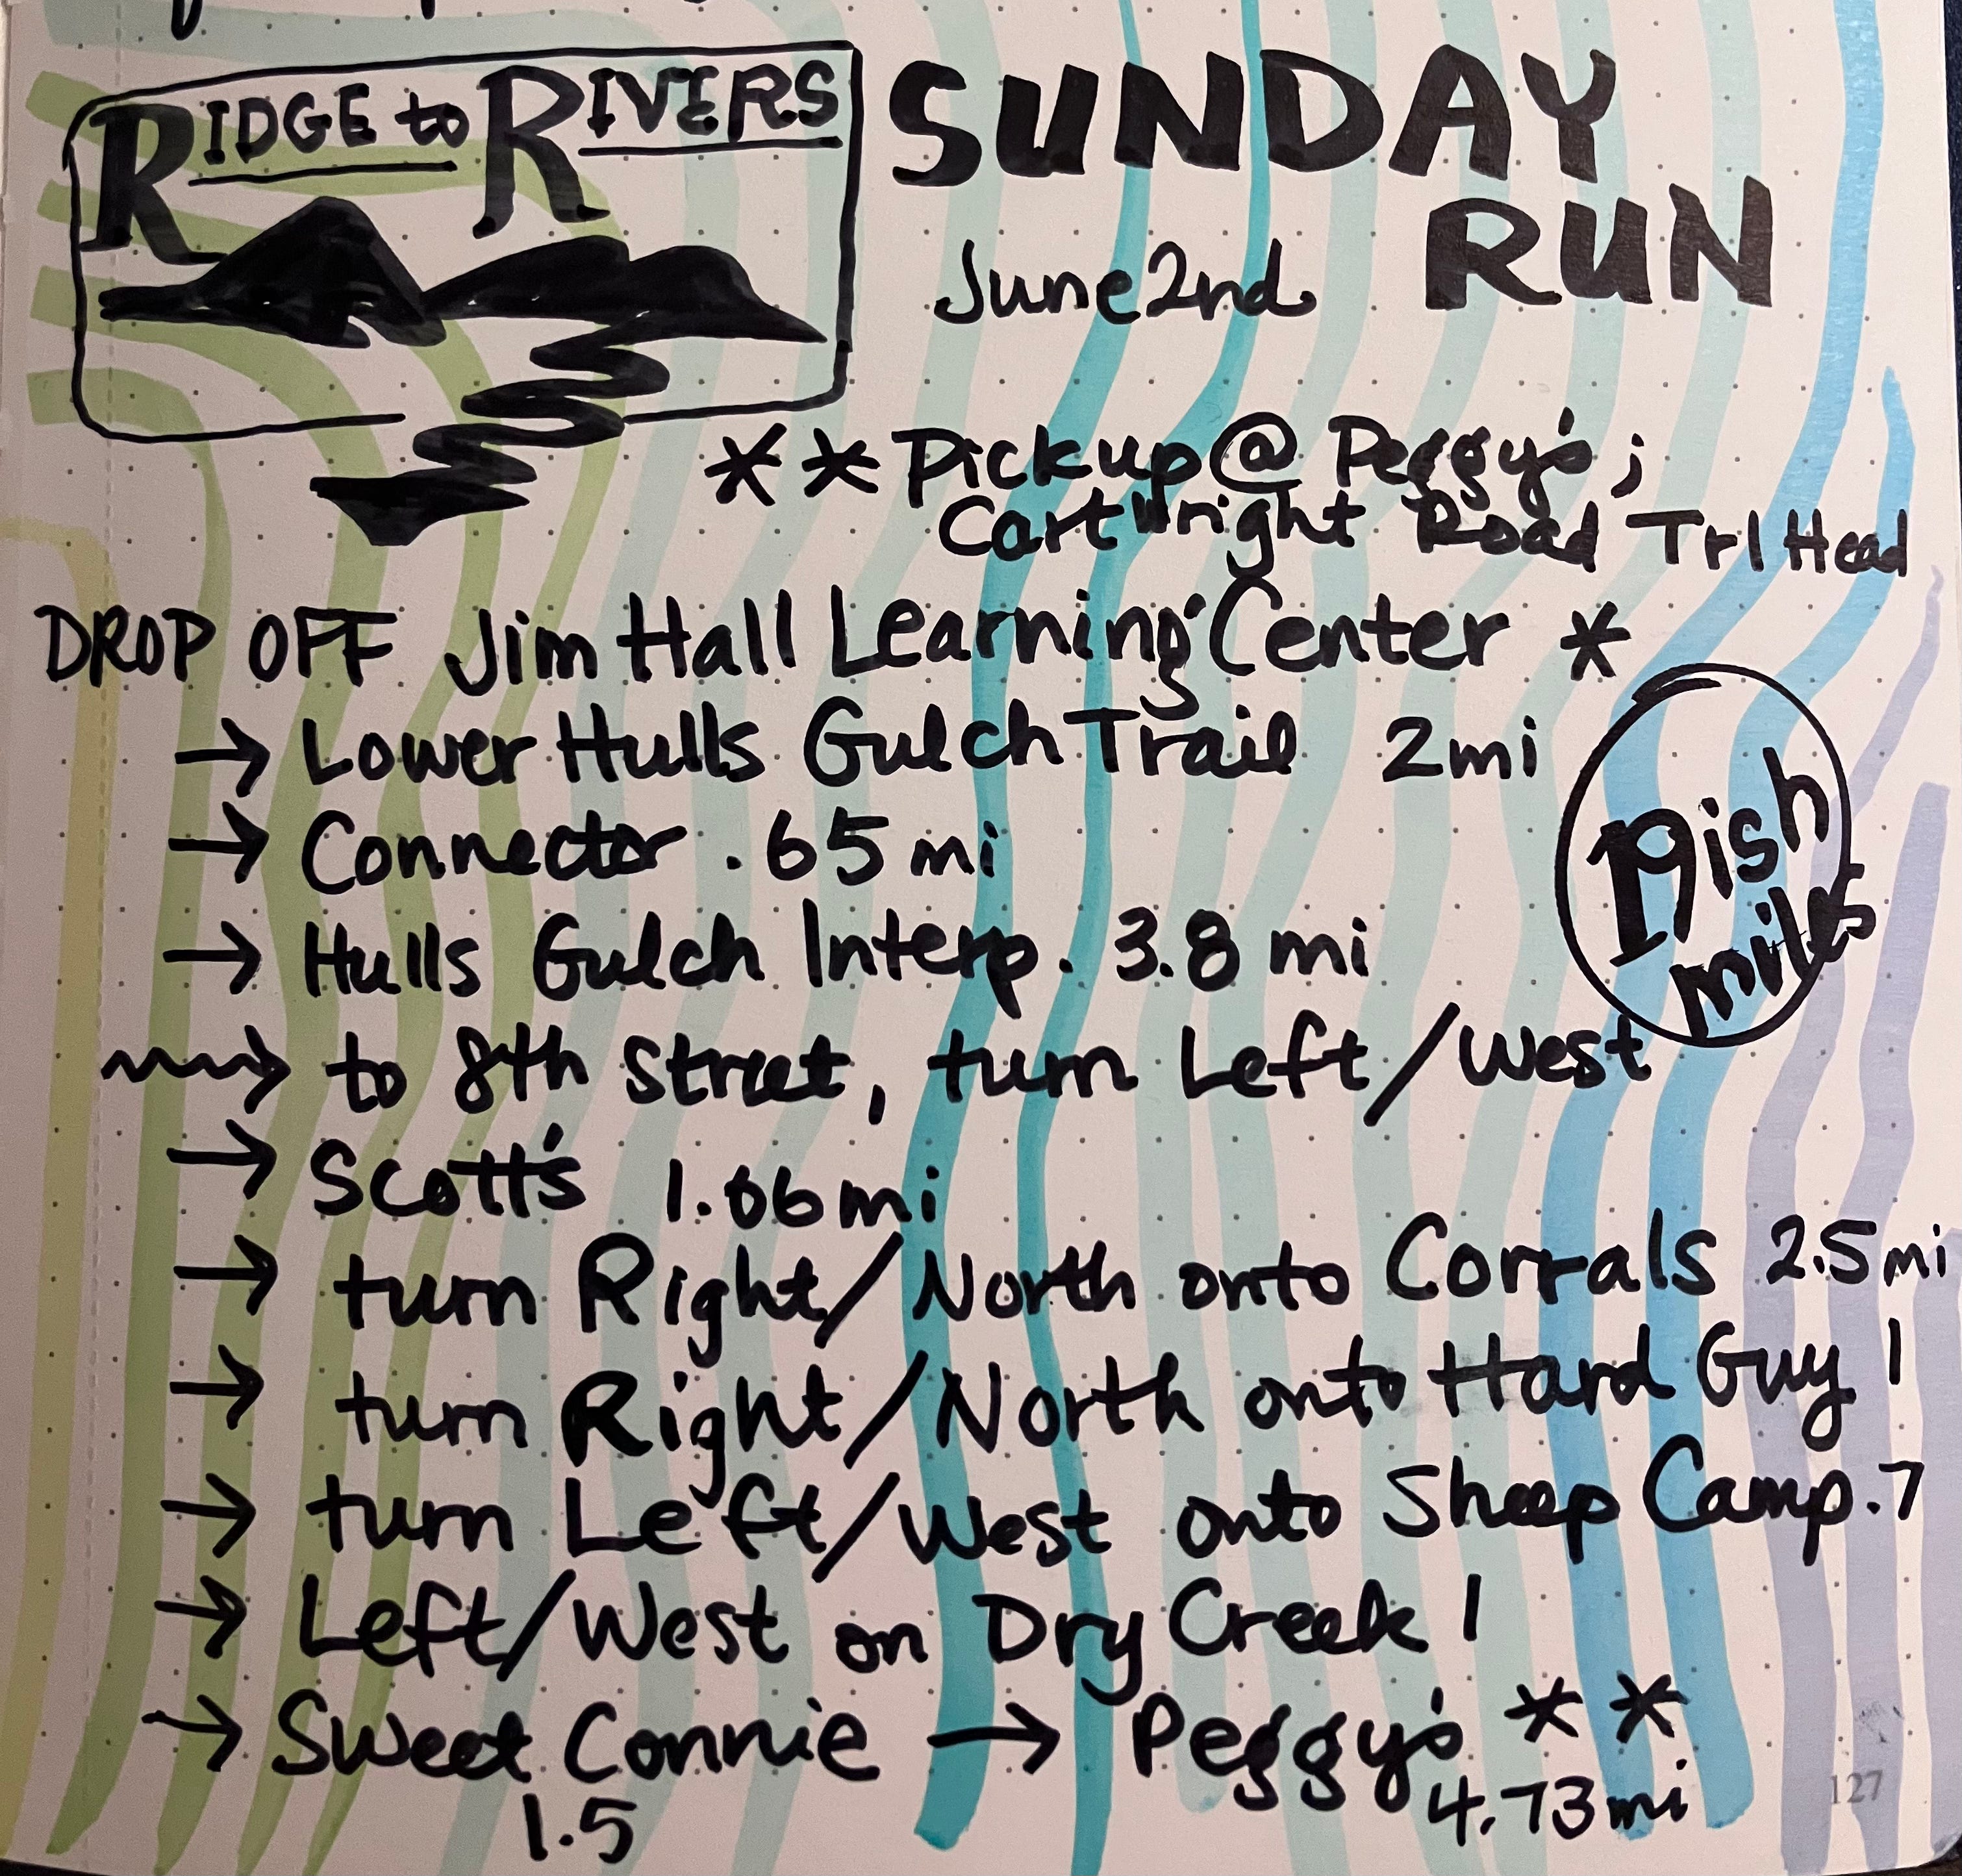 RIDGE to RIVERS
SUNDAY
RUN
June 2nd
** Pickup @ Peggy's ;
Cartwright Road Trl Head
DROP OFF Jim Hall Learning Center *
→ Lower Hulls Gulch Trail 2mi
→ Connector .65 mi
19ish
miles
→ Hulls Gulch Interp. 3.8 mi
→ to 8th street, turn Left/West
→ Scott's 1.06mi
→ turn Right/North onto Corrals 2.5mi
→ turn Right/North onto Hard Guy 1
→ turn Left/West onto Sheep Camp .7
→ Left/West on Dry Creek 1
→ Sweet Connie → Peggy's **
1.5 4.73mi
127